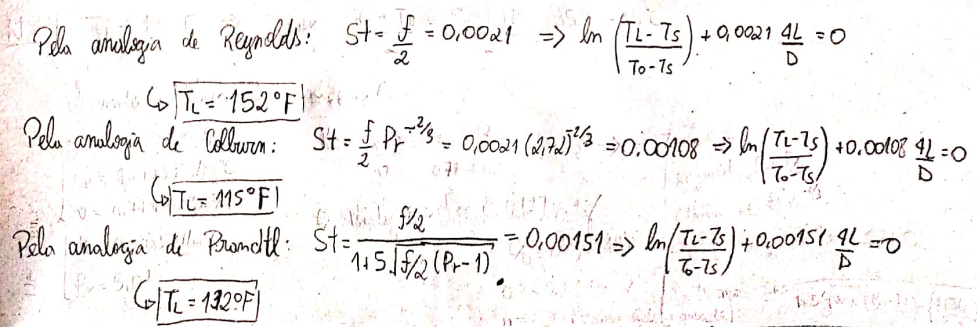 Pela analogia de Reynolds: St = f/2 = 0,0021 => ln (TL - Ts / To - Ts) + 0,0021 4L/D = 0
↳ TL = 152°F
Pela analogia de Colburn: St = f/2 Pr^-2/3 = 0,0021 (2,72)^-2/3 = 0.00108 => ln (TL - Ts / To - Ts) + 0.00108 4L/D = 0
↳ TL = 115°F
Pela analogia de Prandtl: St = f/2 / 1 + 5 √f/2 (Pr - 1) = 0,00151 => ln (TL - Ts / To - Ts) + 0,00151 4L/D = 0
↳ TL = 132°F